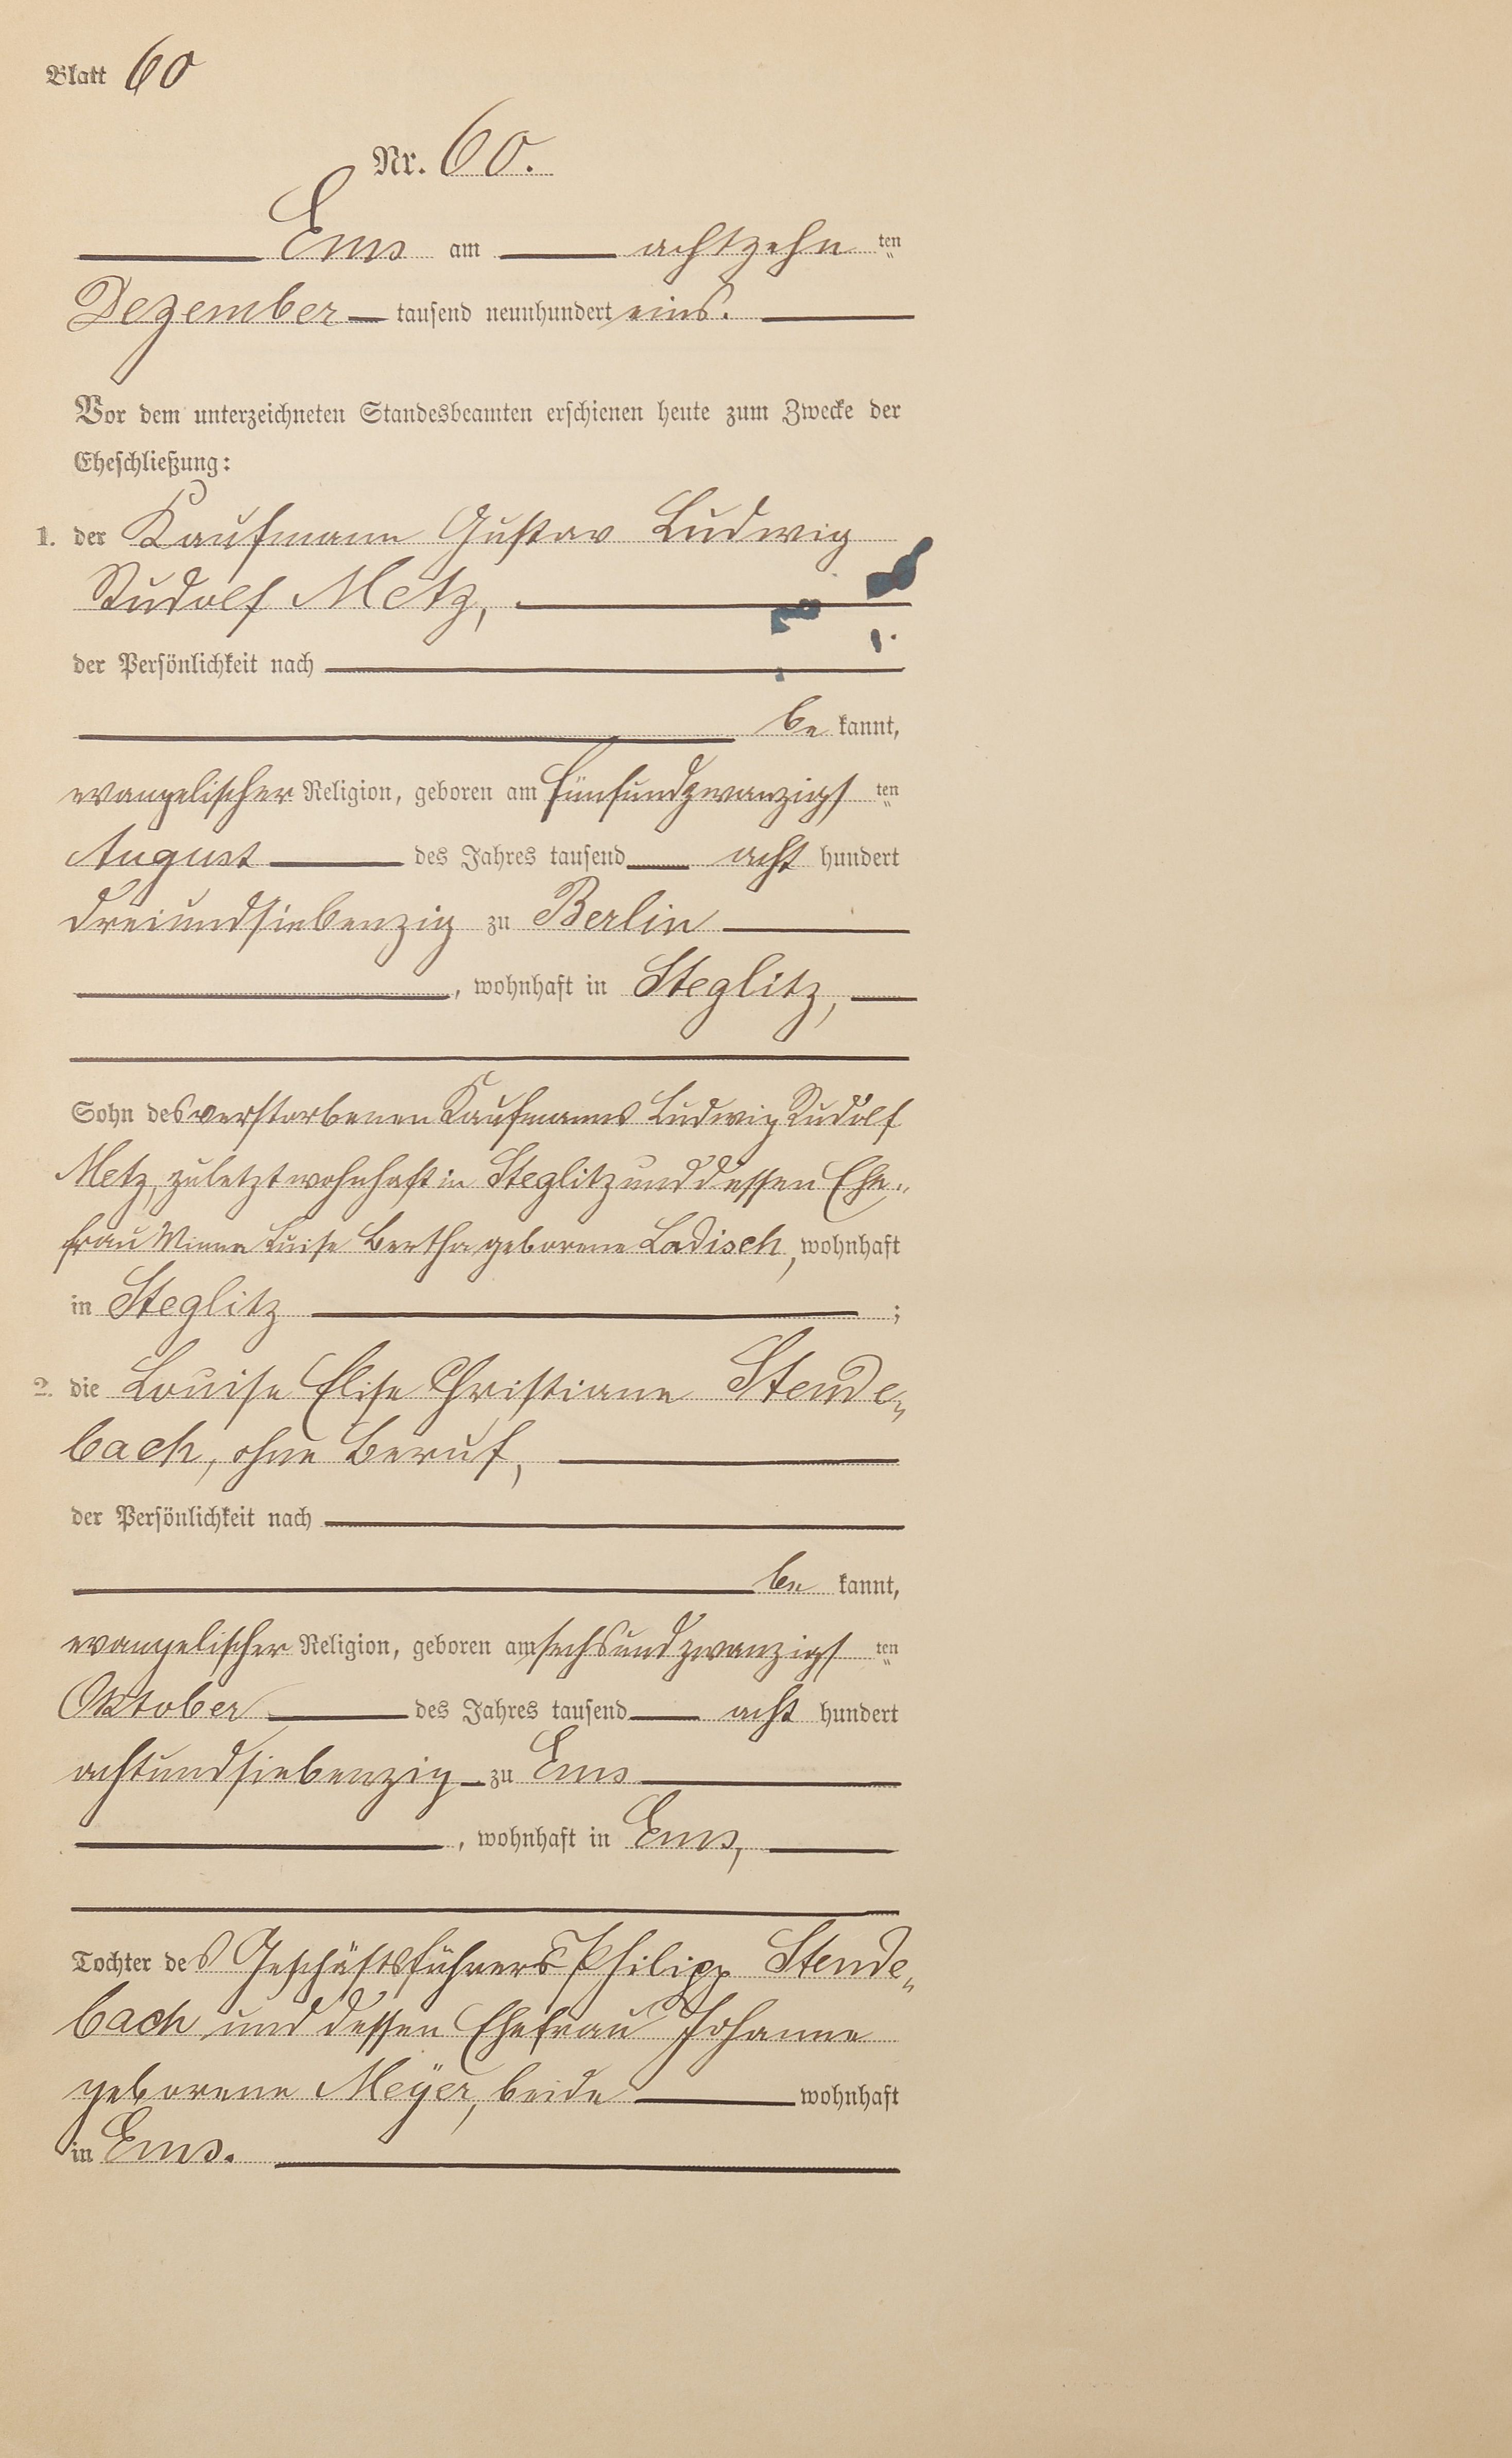 Blatt 60
Nr. 60.
Ems am achtzehn ten
Dezember tausend neunhundert eins.
Vor dem unterzeichneten Standesbeamten erschienen heute zum Zwecke der
Eheschließung:
1. der Kaufmann Gustav Ludwig
Rudolf Metz,
der Persönlichkeit nach
be kannt,
evangelischer Religion, geboren am fünfundzwanzigs ten
August des Jahres tausend acht hundert
dreiundsiebenzig zu Berlin
, wohnhaft in Steglitz,
Sohn des verstorbenen Kaufmanns Ludwig Rudolf
Metz, zuletzt wohnhaft in Steglitz und dessen Ehe-
frau Luise Bertha geborene Ladisch, wohnhaft
in Steglitz ;
2. die Louise Elise Christiane Stende-
bach, ohne Beruf,
der Persönlichkeit nach
be kannt,
evangelischer Religion, geboren am sechsundzwanzigs ten
Oktober des Jahres tausend acht hundert
achtundsiebenzig zu Ems
, wohnhaft in Ems,
Tochter des Geschäftsführers Philipp Stende-
bach und dessen Ehefrau Johanne
geborene Meÿer, beide wohnhaft
in Ems.